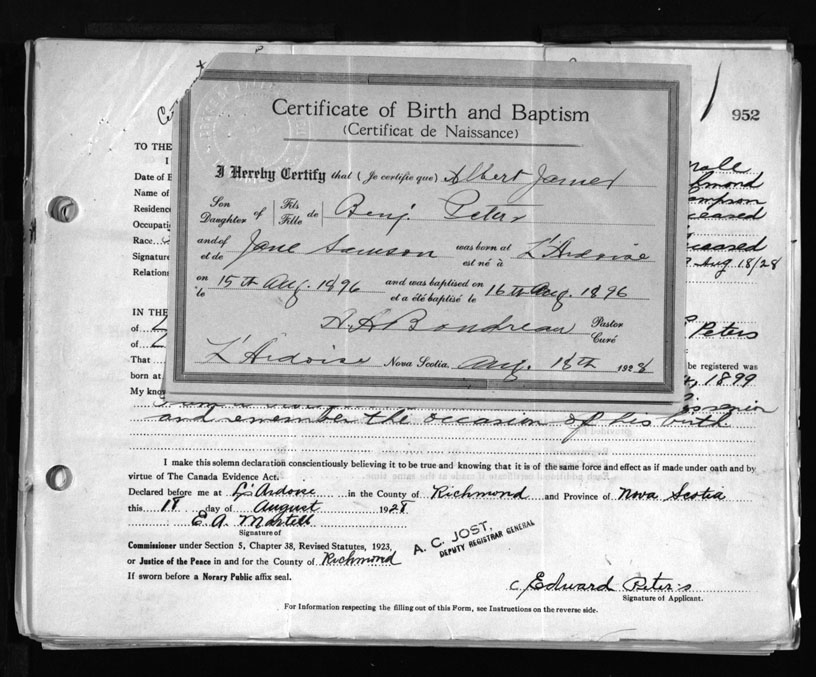 952
Certificate of Birth and Baptism
(Certificat de Naissance)
I Hereby Certify that (Je certifie que) Albert James
Son Daughter of Fils Fille de Benj. Peters
and of et de Jane Samson was born at est né à L'Ardoise
on le 15th Aug. 1896 and was baptised on et a été baptisé le 16th Aug. 1896
A. H. Boudreau Pastor Curé
L'Ardoise Nova Scotia, Aug. 18th 1928
TO THE
I
Date of B
Name of
Residenc
Occupati
Race
Signature
Relations
Aug 18/28
IN THE
of
Peters
of L
That be registered was
born at 1899
My know senior
and remember the occasion of his birth.
I make this solemn declaration conscientiously believing it to be true and knowing that it is of the same force and effect as if made under oath and by
virtue of The Canada Evidence Act.
Declared before me at L'Ardoise in the County of Richmond and Province of Nova Scotia
this 18 day of August 1928
E. A. Martell
Signature of
Commissioner under Section 5, Chapter 38, Revised Statutes, 1923,
or Justice of the Peace in and for the County of Richmond
If sworn before a Norary Public affix seal.
A. C. JOST,
DEPUTY REGISTRAR GENERAL
Edward Peters
Signature of Applicant.
For Information respecting the filling out of this Form, see Instructions on the reverse side.